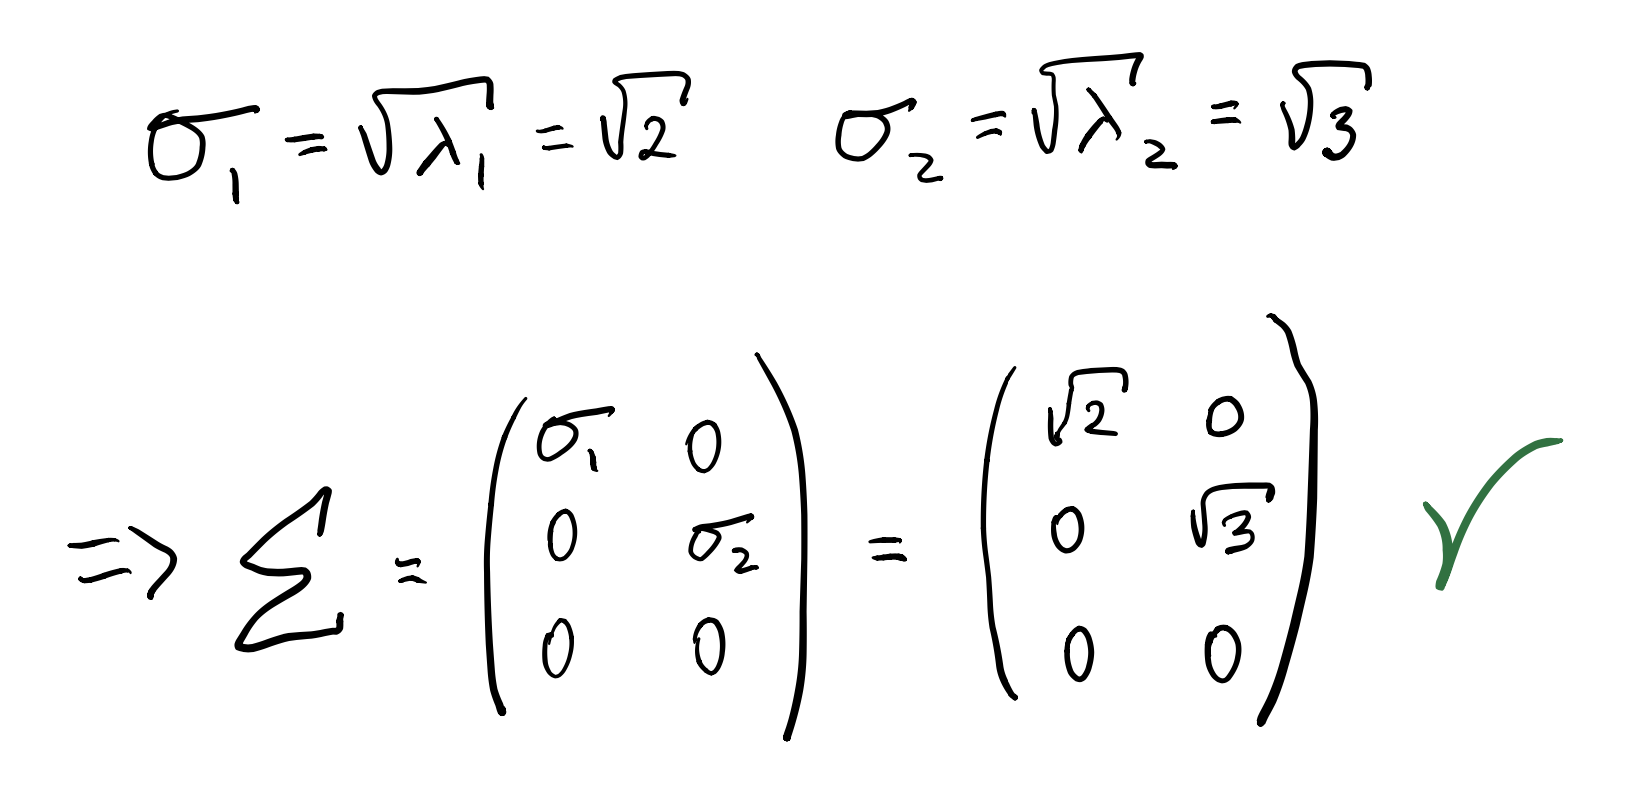 σ₁ = √λ₁ = √2 σ₂ = √λ₂ = √3
=> Σ = (σ₁ 0 0 σ₂ 0 0) = (√2 0 0 √3 0 0) ✓